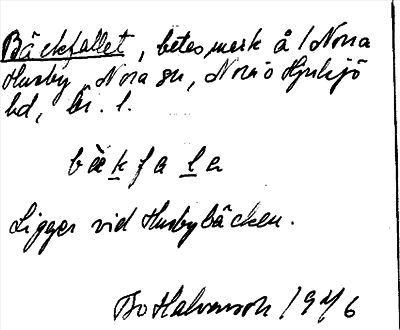 Bäckfallet, betesmark å /Norra
Husby, Nora sn, Nora o Hjulsjö
bd, Ör. l.
bäkfala
Ligger vid Husbybäcken.
Bo Halvarson 1946